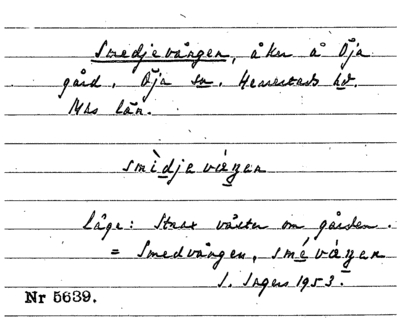 Smedjevången, åker å Öja
gård, Öja sn. Herrestads hd.
Mhs län.
smìdjavàŋan
Läge: Strax väster om gården.
= Smedvången, smé vàŋan
S. Ingers 1953.
Nr 5639.